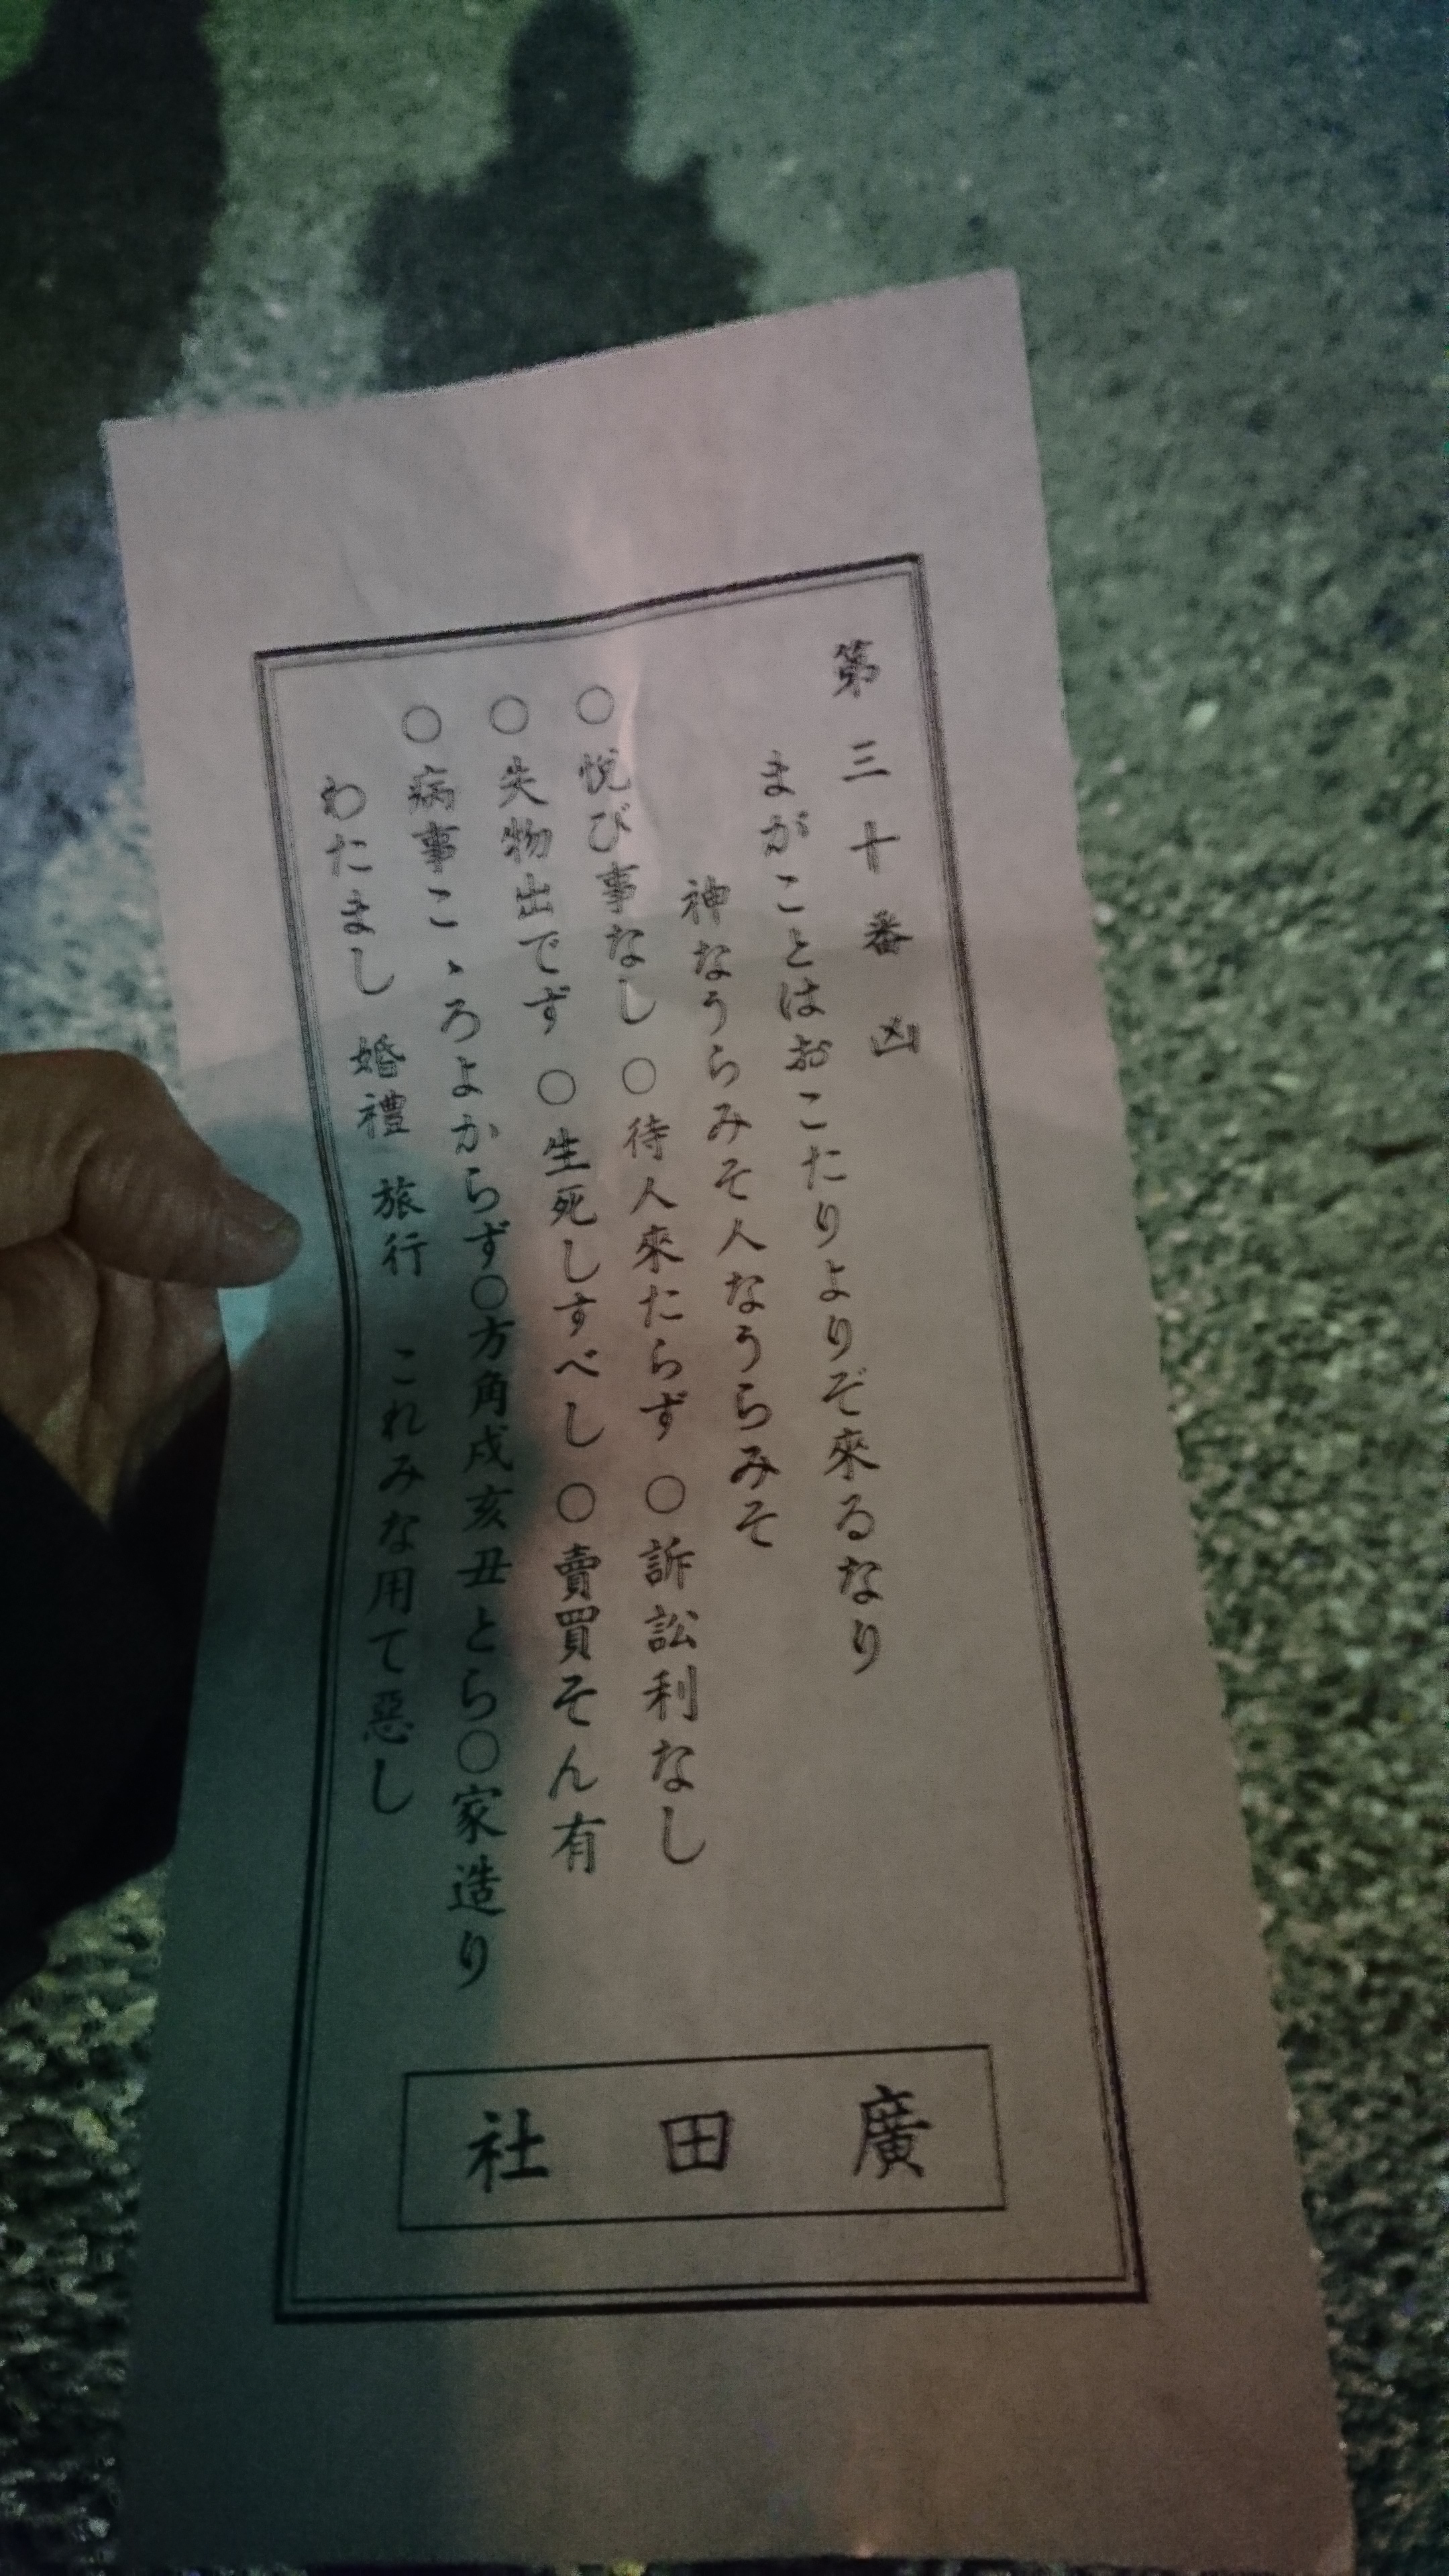 第三十番 凶
まがことはおこたりよりぞ來るなり
神なうらみそ人なうらみそ
○悦び事なし ○待人來たらず ○訴訟利なし
○失物出でず ○生死しすべし ○賣買そん有
○病事こゝろよからず○方角戌亥丑とら○家造り
わたまし 婚禮 旅行 これみな用て惡し
廣田社